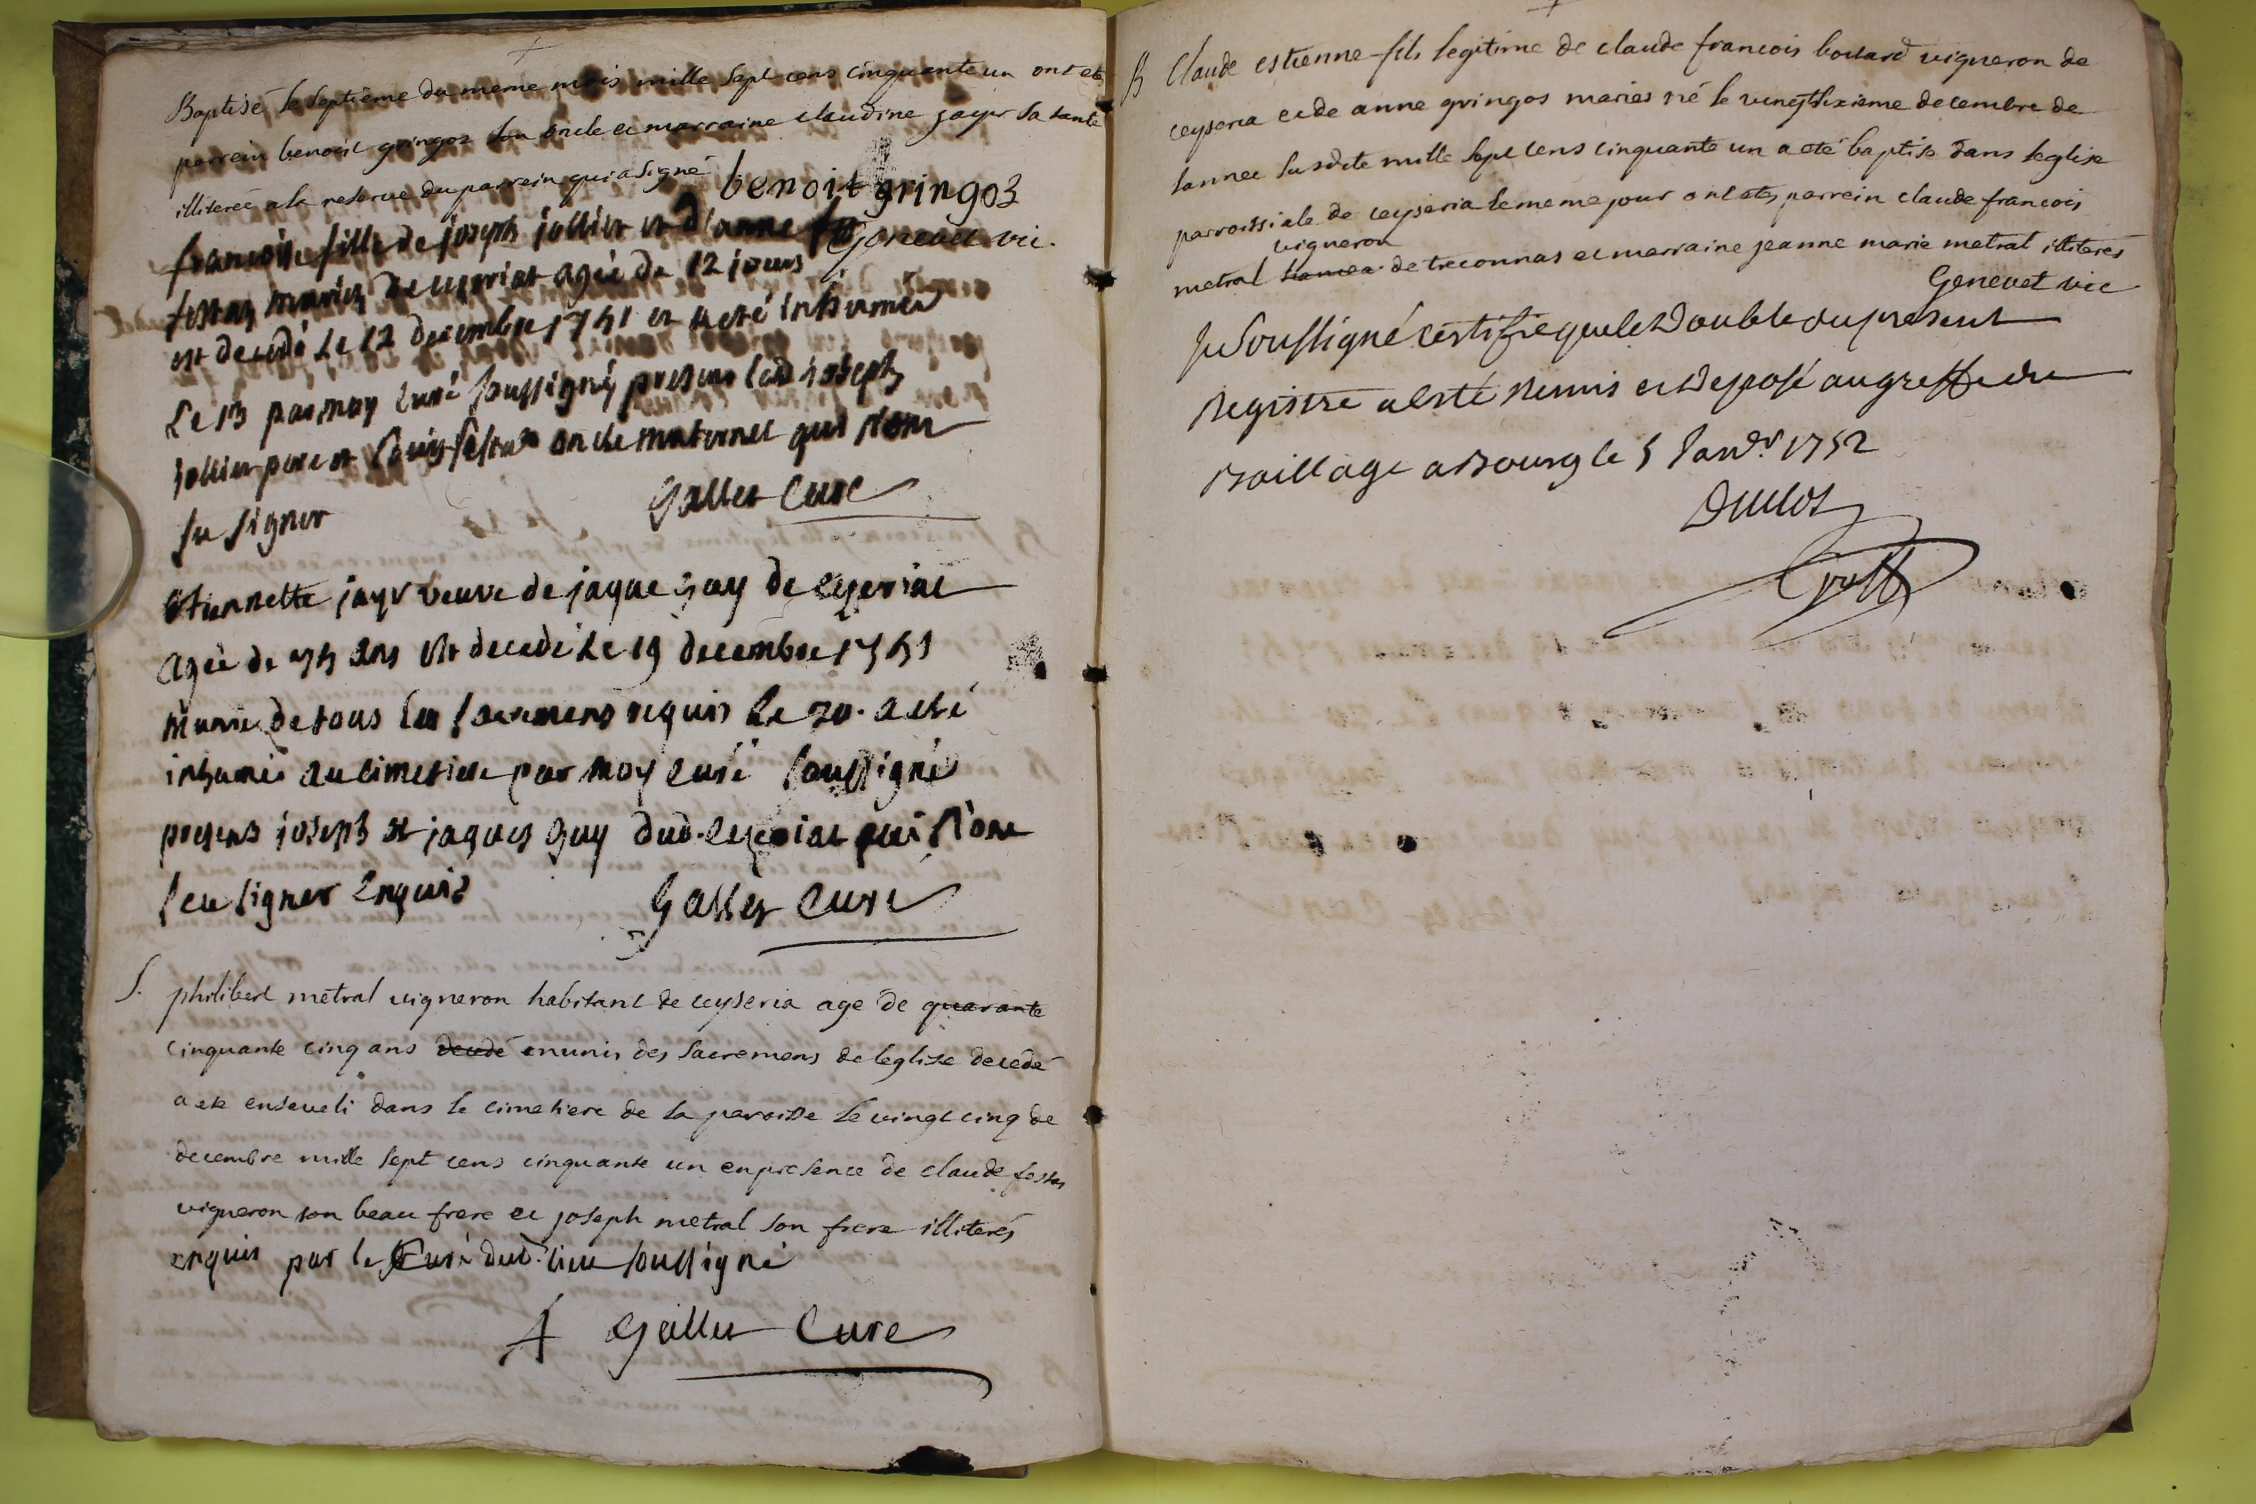 Baptisé le septieme du meme mois mille sept cens cinquante un ont eté
parrein benoit gringoz son oncle et marraine claudine jayr sa tante
illiterée a la reserve du parrein qui a signé
benoit gringoz
Genevet vic.
francoise fille de joseph jollier et d'anne
festas mariez de ceyseriat agée de 12 jours
est decedé le 12 decembre 1751 et a eté inhumée
Le 13 par moy curé soussigné presens led joseph
jollier pere et oncle maternel qui n'ont
su signer
Gallet Curé
Etiennette jayr veuve de jaque guy de ceyseriat
agée de 75 ans est decedé le 19 decembre 1751
munie de tous les sacremens requis le 20. a eté
inhumée au cimetiere par moy curé soussigné
presens joseph et jaques guy dud. ceyseriat qui n'ont
sceu signer enquis
Gallet Curé
S. philibert metral vigneron habitant de ceyseria age de quarante
cinquante cinq ans decedé munis des sacremens de leglise decedé
a ete enseveli dans le cimetiere de la paroisse le vingt cinq de
decembre mille sept cens cinquante un en presence de claude festas
vigneron son beau frere et joseph metral son frere illiterés
enquis par le Curé dud. lieu soussigné
Gallet Curé
B Claude estienne fils legitime de claude francois boulard vigneron de
ceyseria et de anne gringos maries né le vingtsixieme decembre de
lannee susdite mille sept cens cinquante un a eté baptise dans leglise
parroissiale de ceyseria le meme jour ont etes parrein claude francois
vigneron
metral de treconnas et marraine jeanne marie metral illiterés
Genevet vic
Je Soussigné certifie que le Double du present
Registre a esté remis et deposé au greffe du
Baillage a Bourg le 5 Janv.r 1752
Duclos
Greff